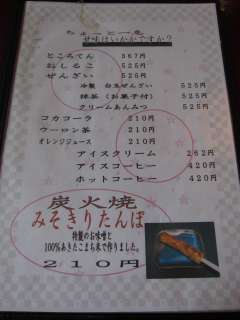 ちょっと一息
甘味はいかがですか?
ところてん 367円
おしるこ 525円
ぜんざい 525円
冷製 白玉ぜんざい 525円
抹茶(お菓子付) 525円
クリームあんみつ 525円
コカコーラ 210円
ウーロン茶 210円
オレンジジュース 210円
アイスクリーム 262円
アイスコーヒー 420円
ホットコーヒー 420円
炭火焼
みそきりたんぽ
特製のお味噌と
100%あきたこまち米で作りました。
210円